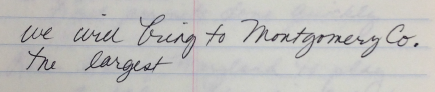 we will bring to Montgomery Co.
the largest